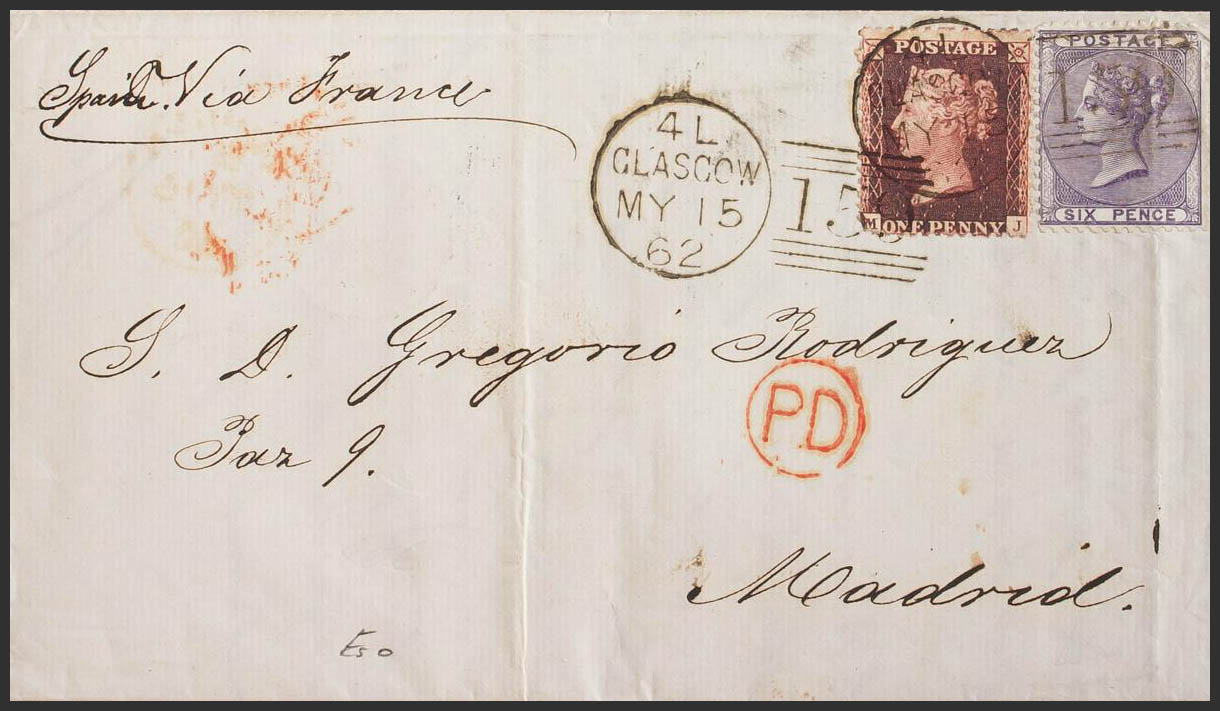 Spain. Via France
4 L
GLASGOW
MY 15
62
159
POSTAGE
M ONE PENNY J
POSTAGE
SIX PENCE
S. D. Gregorio Rodriguez
PD
Paz 9.
Madrid.